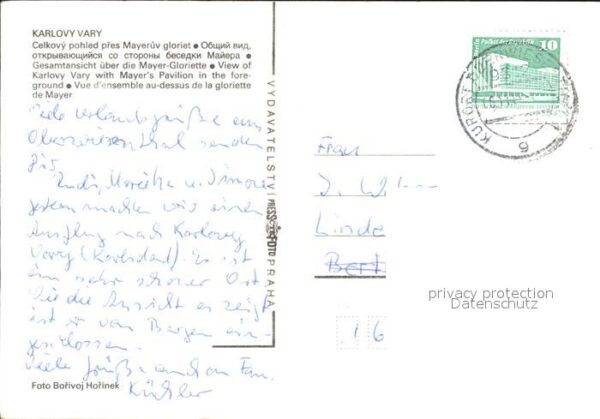 KARLOVY VARY
Celkový pohled přes Mayerův gloriet ● Общий вид,
открывающийся со стороны беседки Майера ●
Gesamtansicht über die Mayer-Gloriette ● View of
Karlovy Vary with Mayer's Pavilion in the fore-
ground ● Vue d'ensemble au-dessus de la gloriette
de Mayer
Viele Urlaubsgrüße aus
Oberwiesenthal senden
u. Simone
gestern machten wir einen
Ausflug nach Karlovy
Vary (Karlsbad). Es ist
ein sehr schöner Ort.
Wie die Ansicht es zeigt
ist er von Bergen ein-
geschlossen.
Viele Grüße auch an Fam.
Küchler
Foto Bořivoj Hořínek
VYDAVATELSTVÍ PRESSFOTO PRAHA
10
KURORT
9
Frau
J. W
Linde
Bert
privacy protection
Datenschutz
1 6